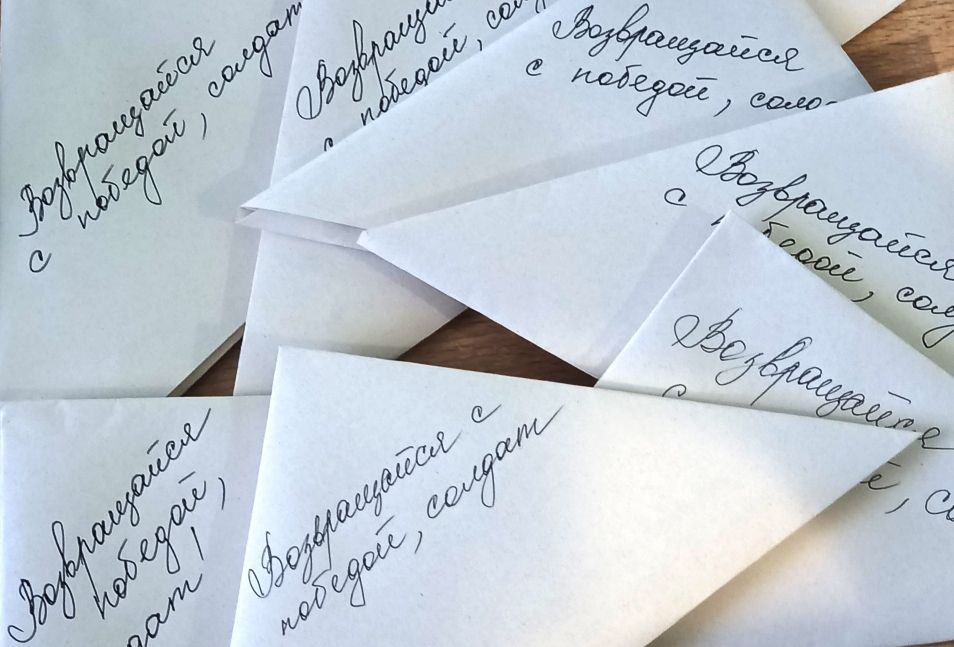 Возвращайся
с победой, солдат
Возвращайся
с победой,
Возвращайся
с победой, солд
Возвращайся
с бедой, солд
Возвращайся
с
Возвращайся с
победой, солдат
Возвращайся
победой,
дат!